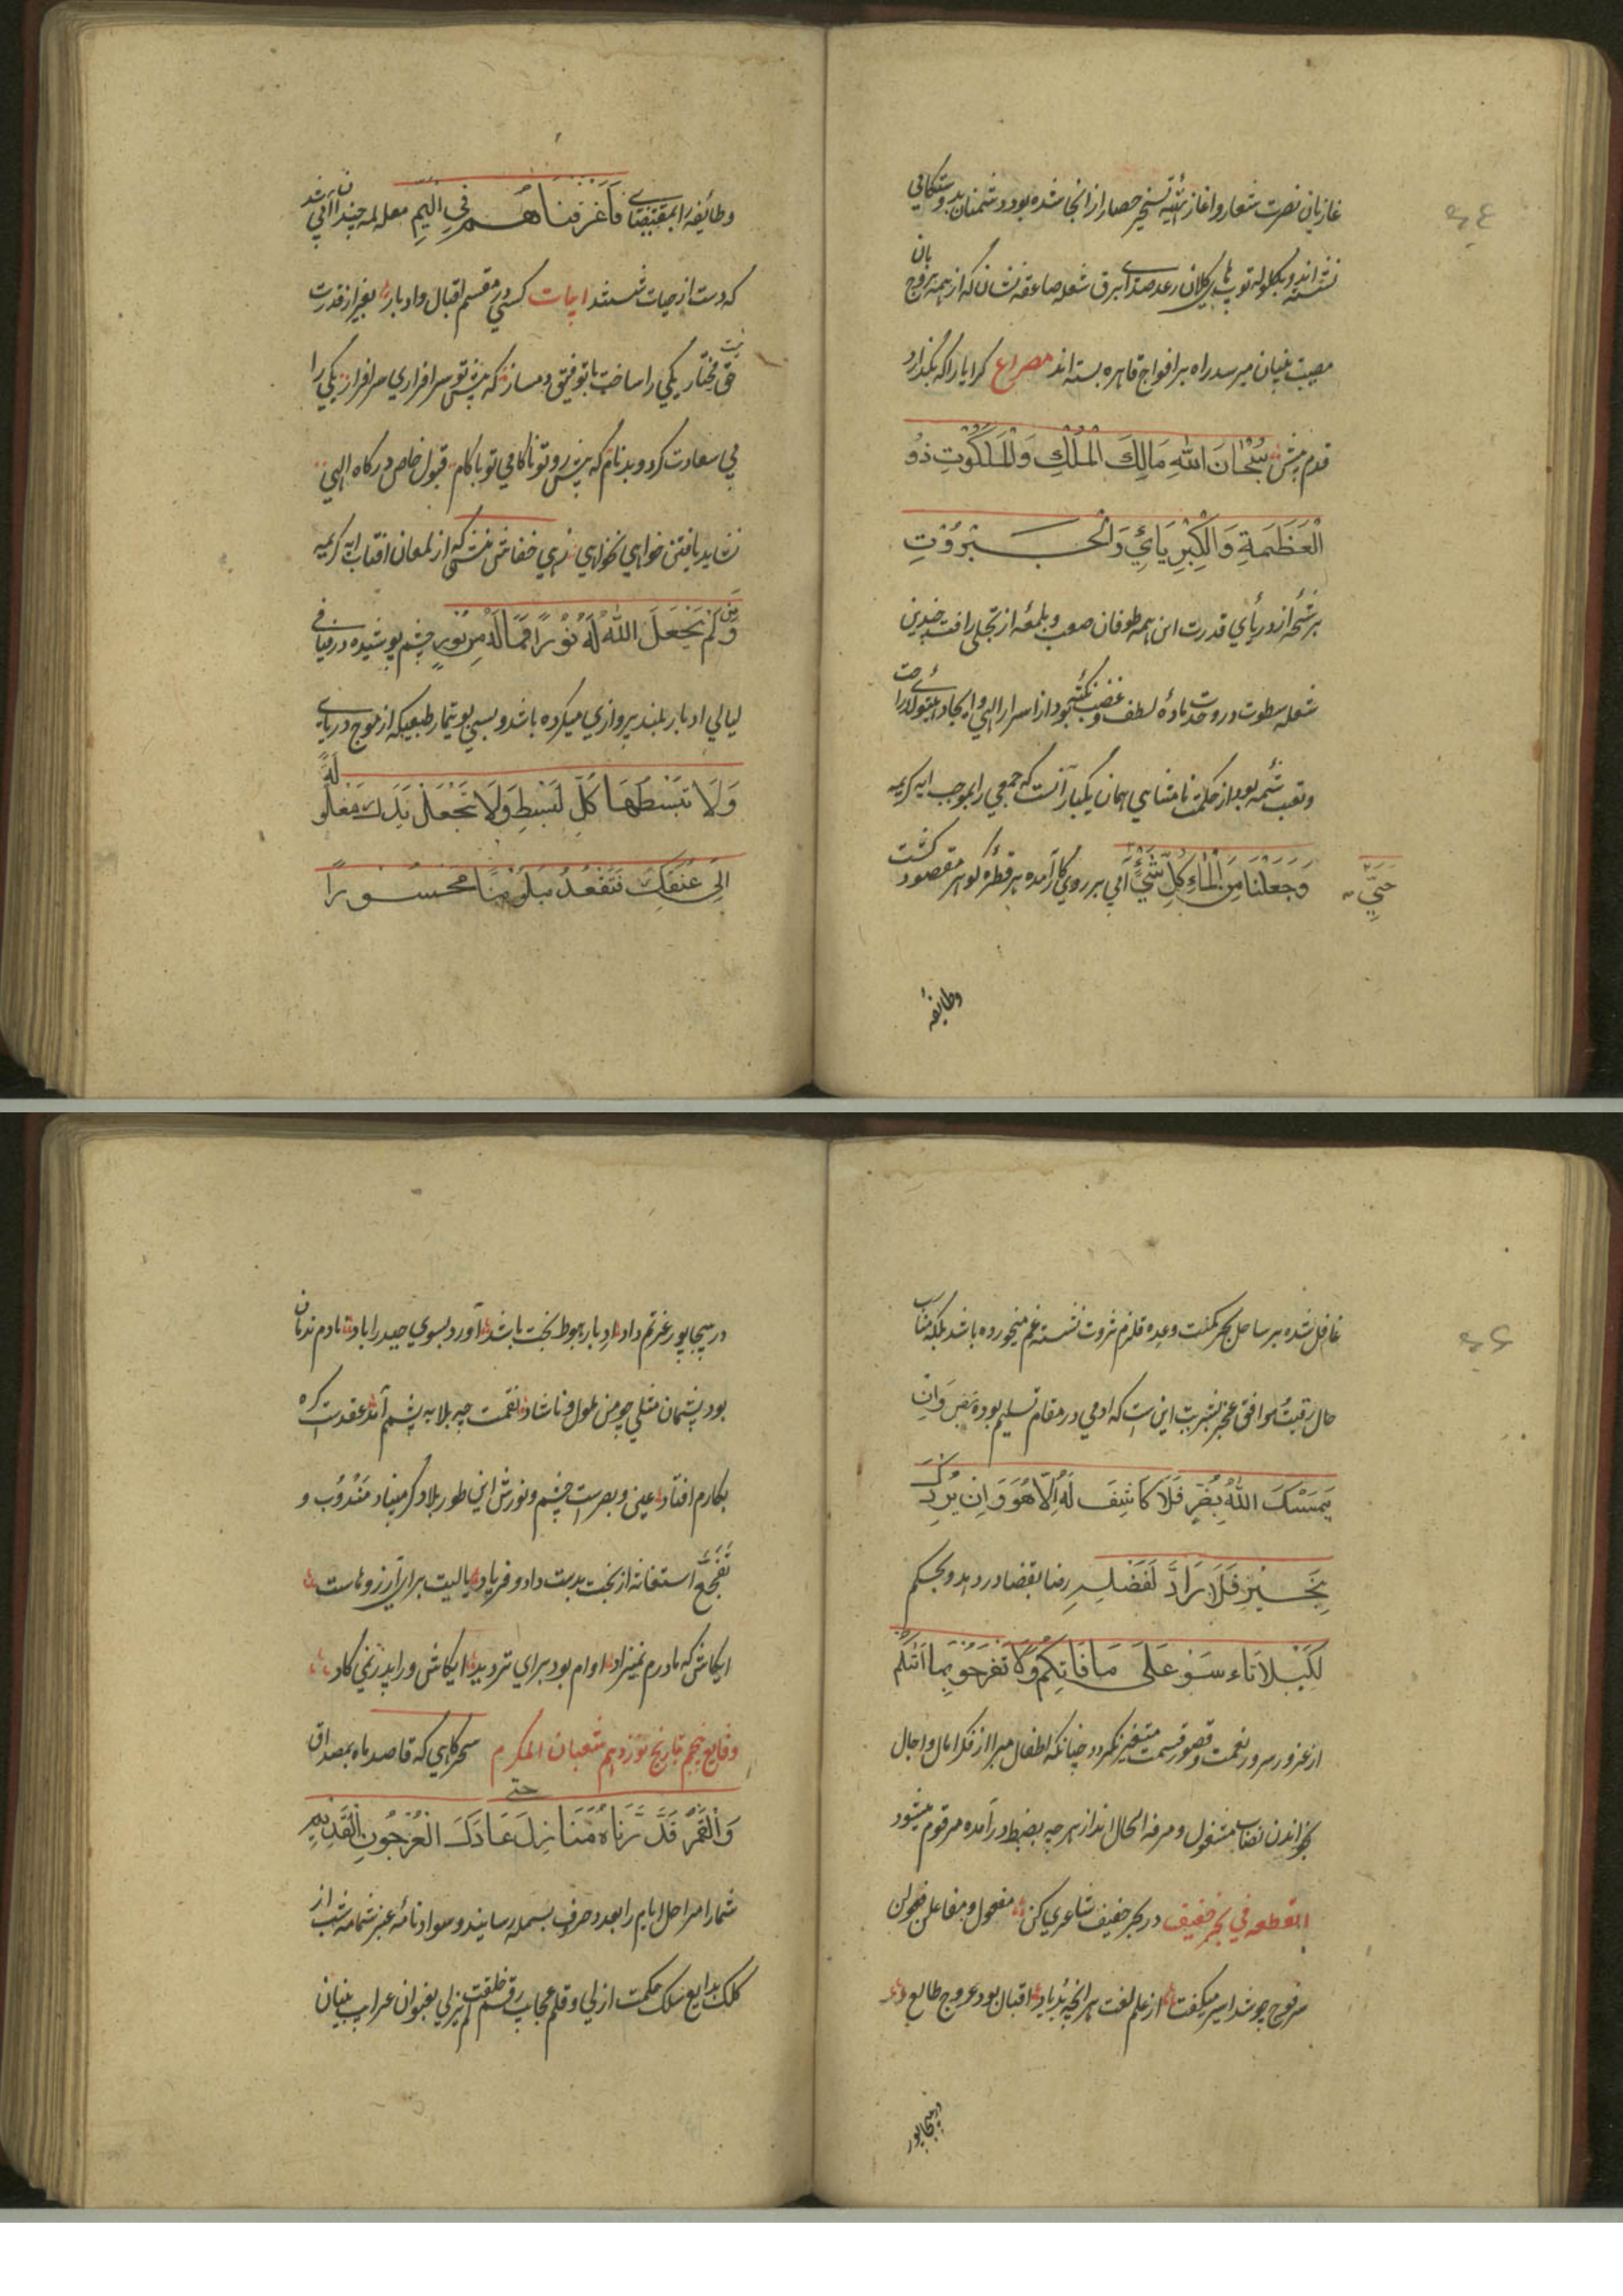 غازیان نصرت شعار و اغاز تهیّه تسخیر حصار از انجا شده بود و دشمنان بدروستکافی
نشسته اند و بکلوله توپ های کلان رعد صدای برق شعله صاعقه نشان که از همه بروج بان
مصیبت بنیان میرسد راه بر افواج قاهره بسته اند مصراع کرا یارا که بگذارد
قدم پیش سُبْحَانَ اللهِ مَالِكَ الْمُلْكِ وَالْمَلَكُوتِ ذُو
الْعَظَمَةِ وَالْكِبْرِيَائِي وَالْجَبَرُوْتِ
برشحه از دریای قدرت این همه طوفان صعب و بلمعه از تجلی رافت چندین
شعله سطوت در وحدت ماده لطف و غضب نکته بود از اسرار الهی و ایجاد هیولای راحت
وتعب شمه بود از حکمت نامتناهی همان یکبار آنست که جمعی را بموجب ایه کریمه
وَجَعَلْنَا مِنَ الْمَاءِ كُلِّ شَيْءٍ آبی بر روی کار آمده هر قطره کوهر مقصود کشت
حَيٍّ
وطایفه
وطائفه را بمقتضای فَأَغْرَقْنَاهُمْ فِي الْيَمِّ معامله چندان آبی شد
که دست از حیات شستند ابیات کسی در مقسم اقبال و ادبار بغیر از قدرت
حق نیست مختار یکی را ساخت با توفیق دمساز که پیش تو سرافرازی سرافراز یکی را
بی سعادت کرد و بدنام که پیش رو تو ناکامی تو باکام قبول خاص درکاه الهی
نشاید یافتن خواهی نخواهی زهی خفاش منشی که از لمعان افتاب ایه کریمه
وَمَنْ لَمْ يَجْعَلَ اللهُ لَهُ نُوْرًا فَمَا لَهُ مِن نُورٍ چشم پوشیده در فیافی
لیالی ادبار بلند پروازی میکرده باشد و بسی بو تیمار طبعیکه از موج دریای
وَلَا تَبْسُطْهَا كُلَّ لْبَسْطِ وَلَا تَجْعَلْ يَدَكَ مَغْلُولَةً
اِلَى عُنُقِكَ فَتَقْعُدَ مَلُوْمًا مَحْسُورًا
غافل شده بر ساحل بحر مکنت و عده قلزم ثروت نشسته غم میخورده باشد بلکه مناسب
حال رقیت موافق عجز بشریت این ست که ادمی در مقام تسلیم بوده بنص وَاِنْ
يَمْسَسْكَ اللهُ بِضُرٍّ فَلَا كَاشِفَ لَهُ اِلَّا هُوَ وَاِن يُرِدْكَ
بِخَيْرٍ فَلَا رَادَّ لِفَضْلِهِ رضا بقضا در دهد و بحکم
لِكَيْلَا تَاءسَوْ عَلَى مَا فَاتَكُمْ وَلَا تَفْرَحُوْ بِمَا اَتٰكُمْ
از غرور سرور نعمت و قصور قسمت متغیر نکردد چنانکه اطفال مبرا از فکر امال و اجال
بخواندن نصاب مشغول و مرفه الحال انداز هر چه بضبط در آمده مرقوم میشود
القطعه فی بحر خفیف در بحر خفیف شاعری کن مفعول و مفاعلن فعولن
سرفوج چو شد اسیر میکفت از علم لغت هر انچه بد یاد اقبال بود عروج طالع
در بیجاپور
در بیجاپور غرتم داد ادبار هبوط بخت باشد آورد بسوی حیدراباد نادم ندمان
بود پشیمان مثلی چو من ملول و ناشاد نقمت چه بلا به پشم آمد عقدست کره
بکارم افتاد عین و بصرست چشم و نورش این طور بلا دکر مبیناد مَنْدُوْب و
تَفَجُّع استغاثه از بخت بدست داد و فریاد یالیت برای آرزوهاست
ایکاش که مادرم نمیزاد اوام بود برای تردید ایکاش ورا پدر نمی کاد
وقایع پنجم بتاریخ نوزدهم شعبان المکرم سحرکاهی که قاصد ماه بمصداق
وَالْقَمَرَ قَدَّرْنَاهُ مَنَازِلَ حتی عَادَكَ الْعُرْجُونِ الْقَدِيْمِ
شمار مراحل ایام را بعدد حروف بسمله رسانید و سواد نامه عنبر شمامه شب از
کلک بدایع سلک حکمت ازلی و قلم عجایب رقم خلقت لم یزلی بعنوان عراب بنیان